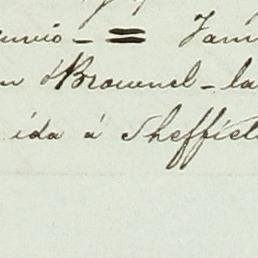 unio - = Jam
n d'Brownel - la
ida á Sheffiel